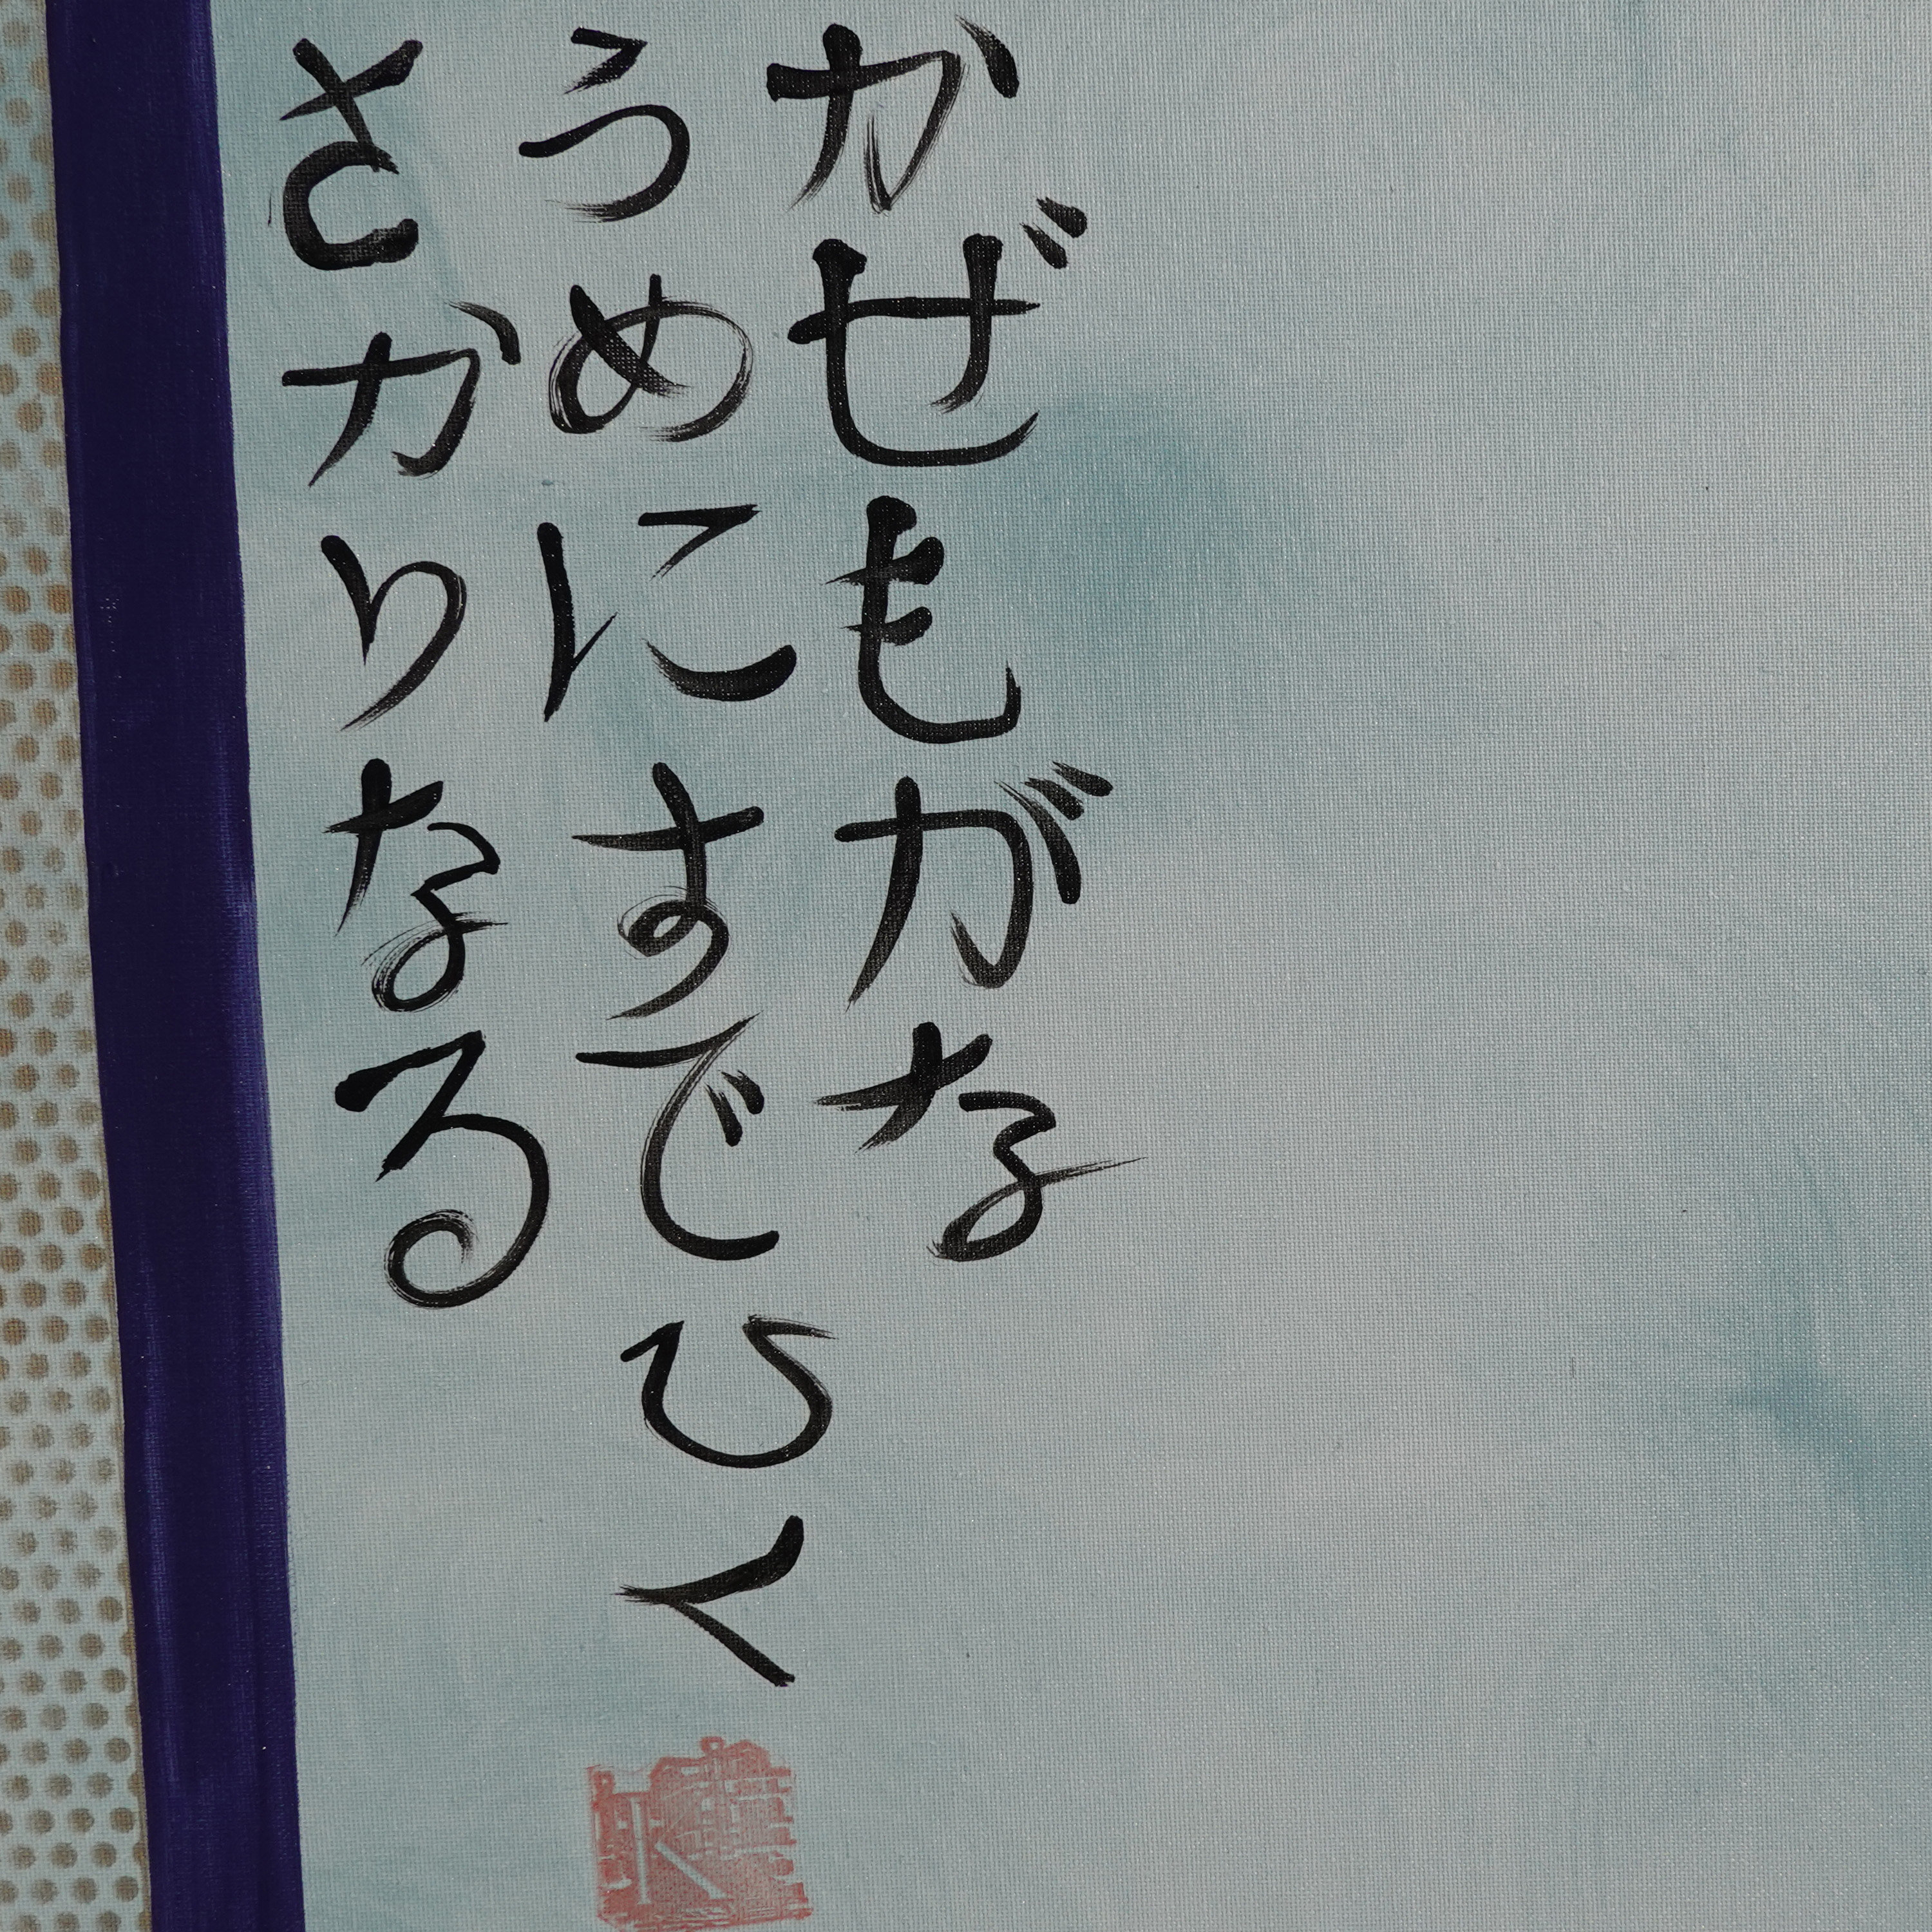 かぜもがな
うめにすでひく
さかりなる
K